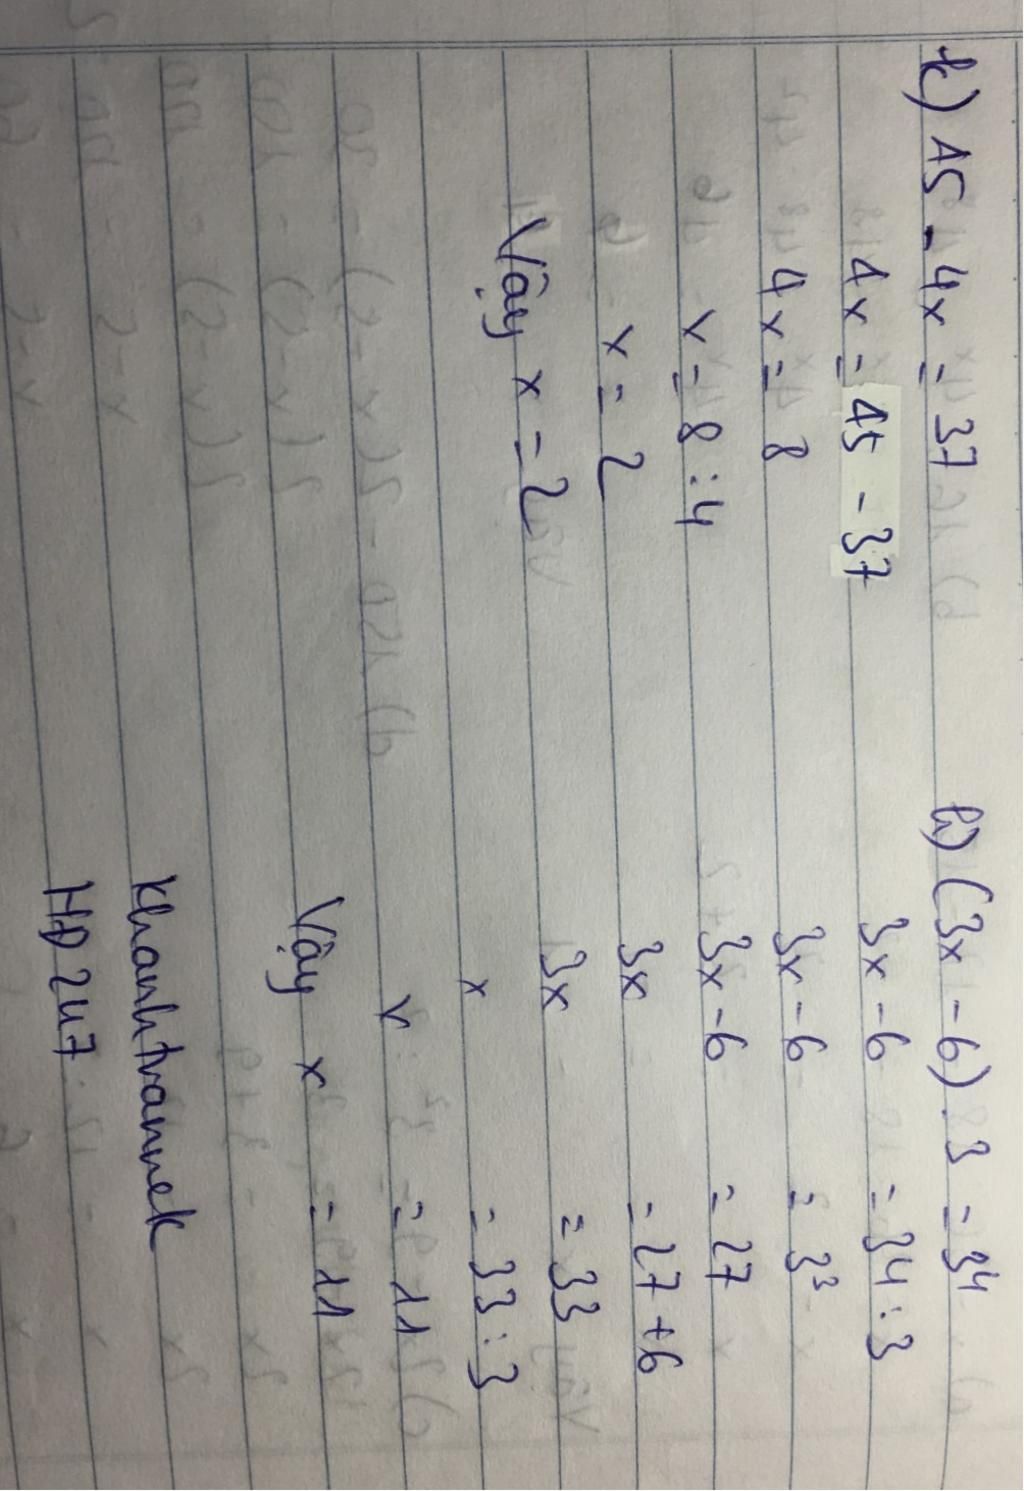 k) 45 - 4x = 37
4x = 45 - 37
4x = 8
x = 8 : 4
x = 2
Vậy x = 2
h) (3x - 6) . 3 = 3⁴
3x - 6 = 34 : 3
3x - 6 = 3³
3x - 6 = 27
3x = 27 + 6
3x = 33
x = 33 : 3
x = 11
Vậy x = 11
khanhtrannek
HD 247